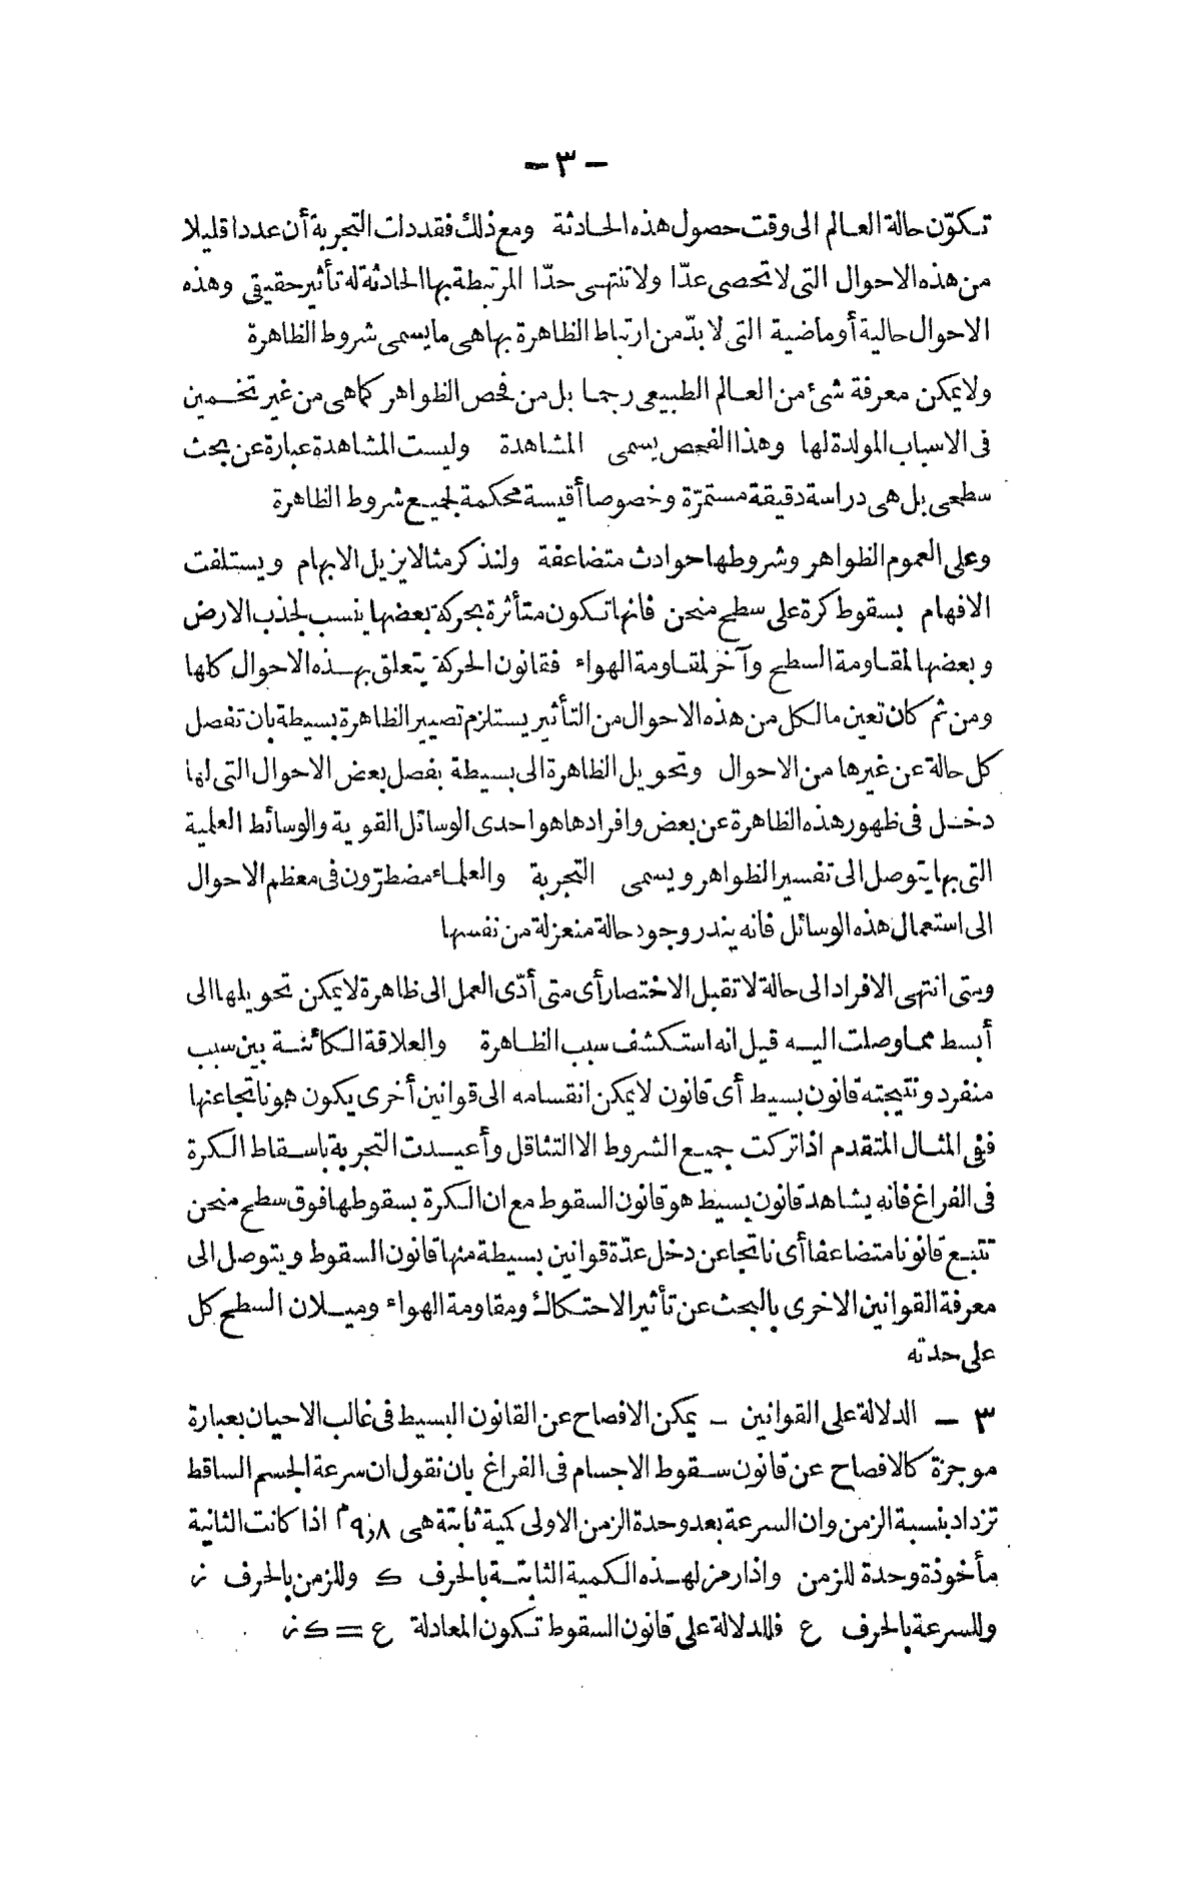 - ٣ -
تكوّن حالة العالم الى وقت حصول هذه الحادثة ومع ذلك فقد دلت التجربة أن عددا قليلا
من هذه الاحوال التى لا تحصى عدّا ولا تنتهى حدّا المرتبطة بها الحادثة له تأثير حقيقى وهذه
الاحوال حالية أو ماضية التى لا بدّ من ارتباط الظاهرة بها هى ما يسمى شروط الظاهرة
ولا يمكن معرفة شئ من العالم الطبيعى رجما بل من فحص الظواهر كما هى من غير تخمين
فى الاسباب المولدة لها وهذا الفحص يسمى المشاهدة وليست المشاهدة عبارة عن بحث
سطحى بل هى دراسة دقيقة مستمرّة وخصوصا أقيسة محكمة لجميع شروط الظاهرة
وعلى العموم الظواهر وشروطها حوادث متضاعفة ولنذكر مثالا يزيل الابهام ويستلفت
الافهام بسقوط كرة على سطح منحن فانها تكون متأثرة بحركة بعضها ينسب لجذب الارض
وبعضها لمقاومة السطح وآخر لمقاومة الهواء فقانون الحركة يتعلق بهذه الاحوال كلها
ومن ثم كان تعين ما لكل من هذه الاحوال من التأثير يستلزم تصيير الظاهرة بسيطة بان تفصل
كل حالة عن غيرها من الاحوال وتحويل الظاهرة الى بسيطة بفصل بعض الاحوال التى لها
دخل فى ظهور هذه الظاهرة عن بعض وافرادها هو احدى الوسائل القوية والوسائط العلمية
التى بها يتوصل الى تفسير الظواهر ويسمى التجربة والعلماء مضطرّون فى معظم الاحوال
الى استعمال هذه الوسائل فانه يندر وجود حالة منعزلة من نفسها
ومتى انتهى الافراد الى حالة لا تقبل الاختصار أى متى أدّى العمل الى ظاهرة لا يمكن تحويلها الى
أبسط مما وصلت اليه قيل انه استكشف سبب الظاهرة والعلاقة الكائنة بين سبب
منفرد ونتيجته قانون بسيط أى قانون لا يمكن انقسامه الى قوانين أخرى يكون هو ناتجا عنها
ففى المثال المتقدم اذا تركت جميع الشروط الا التثاقل وأعيدت التجربة باسقاط الكرة
فى الفراغ فانه يشاهد قانون بسيط هو قانون السقوط مع ان الكرة بسقوطها فوق سطح منحن
تتبع قانونا متضاعفا أى ناتجا عن دخل عدّة قوانين بسيطة منها قانون السقوط ويتوصل الى
معرفة القوانين الاخرى بالبحث عن تأثير الاحتكاك ومقاومة الهواء وميلان السطح كل
على حدته
٣ - الدلالة على القوانين - يمكن الافصاح عن القانون البسيط فى غالب الاحيان بعبارة
موجزة كالافصاح عن قانون سقوط الاجسام فى الفراغ بان نقول ان سرعة الجسم الساقط
تزداد بنسبة الزمن وان السرعة بعد وحدة الزمن الاولى كمية ثابتة هى ٩,٨م اذا كانت الثانية
مأخوذة وحدة للزمن واذا رمز لهذه الكمية الثابتة بالحرف ك وللزمن بالحرف ز
وللسرعة بالحرف ع فللدلالة على قانون السقوط تكون المعادلة ع = ك ز